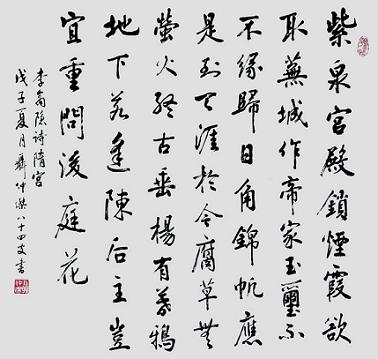 紫泉宮殿鎖煙霞欲
取蕪城作帝家玉璽不
不緣歸日角錦帆應
是到天涯於今腐草無
螢火終古垂楊有暮鴉
地下若逢陳后主豈
宜重問後庭花
李商隱詩隋宮
戊子夏月仲傑八十四叟書